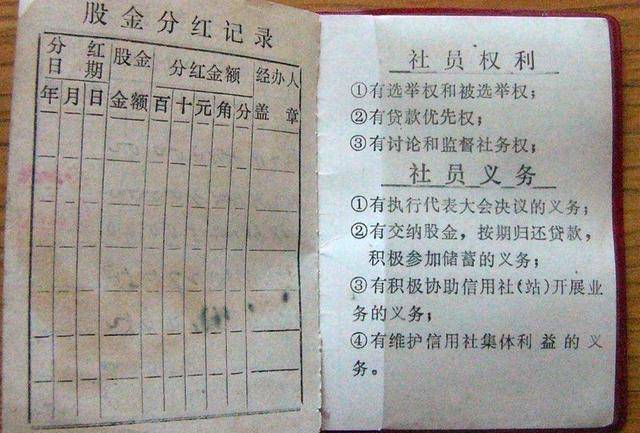 股金分红记录
分红日期 股金金额 分红金额 经办人盖章
年 月 日 百 十 元 角 分
社员权利
①有选举权和被选举权;
②有贷款优先权;
③有讨论和监督社务权;
社员义务
①有执行代表大会决议的义务;
②有交纳股金,按期归还贷款,
积极参加储蓄的义务;
③有积极协助信用社(站)开展业
务的义务;
④有维护信用社集体利益的义
务。